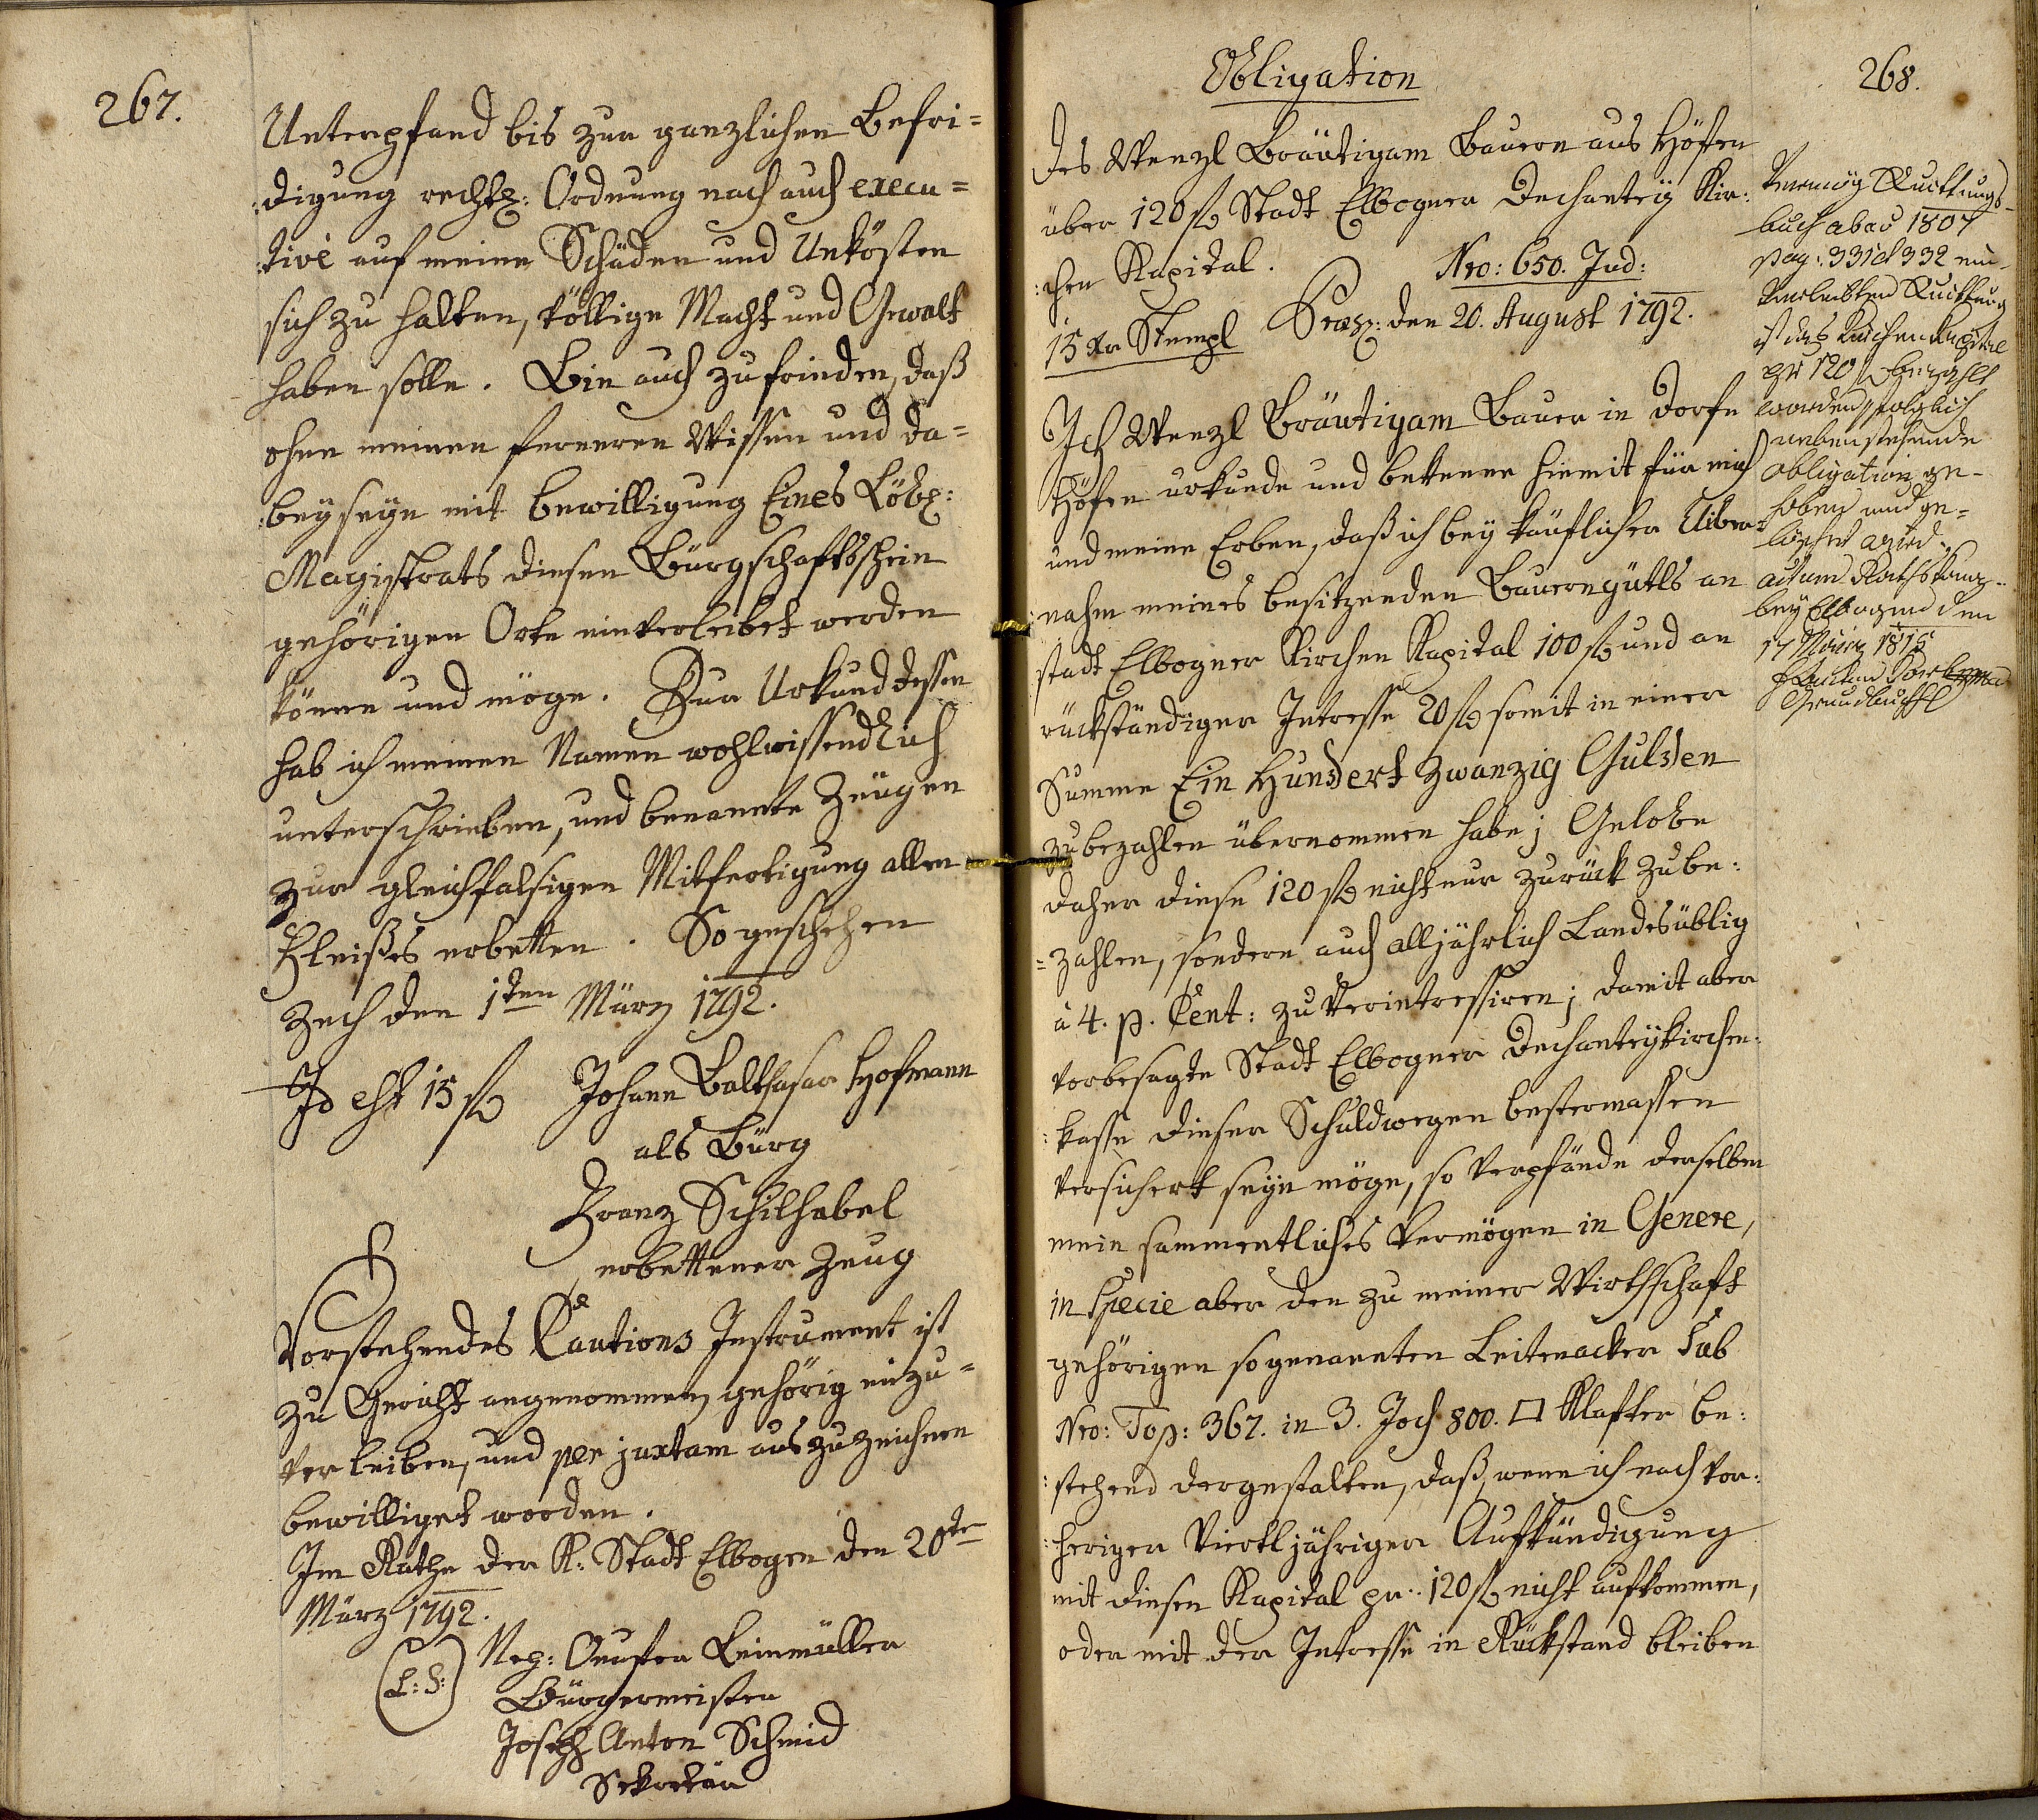 267.
Unterpfand bis zur ganzlichen Befri=
:digung rechtl: Ordnung nach auch execu=
:tivè auf meine Schäden und Unkösten
sich zu halten, völlige Macht und Gewalt
haben solle. Bin auch zufrieden, daß
ohne meinen ferneren Wissen und da=
:beyseyn mit bewilligung Eines Löbl:
Magistrats diesen Bürgschaftsschein
gehörigen Orte einverleibet werden
könne und möge. Zur Urkund dessen
hab ich meinen Namen wohlwissendlich
unterschrieben, und benannte Zeügen
zur gleichfalsigen Mitfertigung allen
Fleißes erbetten. So geschehen
Zech den 1ten März 1792.
Id est 15 f Johann Balthasar Hofmann
als Bürg
Franz Schilhabel
erbettener Zeug
Vorstehendes Cautions Instrument ist
zu Gericht angenommen, gehörig einzu=
verleiben, und per juxtam auszuzeichnen
bewilliget worden.
Im Rathe der K: Stadt Elbogen den 20te
März 1792.
(L: S:) Leinmüller
Bürgermeister
Joseph Anton Schmid
Sekretär
268.
Obligation
des Wenzl Bräutigam Bauern aus Höfen
über 120 f Stadt Elbogner Dechantey Kir:
:chen Kapital.
Nro: 650. Jud:
15 Xr Stempl Praes: den 20. August 1792.
Ich Wenzl Bräutigam Bauer in Dorfe
Höfen urkunde und bekenne hiemit für mich
und meine Erben, daß ich bey käuflicher Uiber=
:nahm meines besitzenden Bauerngütls an
stadt Elbogner Kirchen Kapital 100 f und an
rückständiger Intresse 20 f somit in einer
Summe Ein Hundert Zwanzig Gulden
zu bezahlen übernommen habe; Gelobe
daher diese 120 f nicht nur zurück zu be:
=zahlen, sondern auch alljährlich Landesüblig
à 4. p. Cent: zu Verintressiren; damit aber
vorbesagte Stadt Elbogner Dechanteykirchen:
:kasse dieser Schuldwegen bestermassen
versichert seyn möge, so verpfände derselben
mein sammentliches Vermögen in Genere,
in Specie aber den zu meiner Wirthschaft
gehörigen sogenannten Leitenacker Sub
Nro: Top: 367. in 3. Joch 800. □ Klafter be:
:stehend dergestalten, daß, wenn ich nach vor:
:heriger Viertljähriger Aufkündigung
mit diesen Kapital pr. 120 f nicht aufkommen,
oder mit der Intresse in Rückstand bleiben
Vermög Quittungs-
buch ab ao 1807
pag: 331 et 332 ein-
verleibten Quittung
ist das Kirchenkapital
pr 120 f bezahlt
worden, folglich
nebenstehende
obligation ge-
hoben und ge-
löschet wird.
actum Rathskanz-
ley Elbogen den
17 März
Grundbuchf